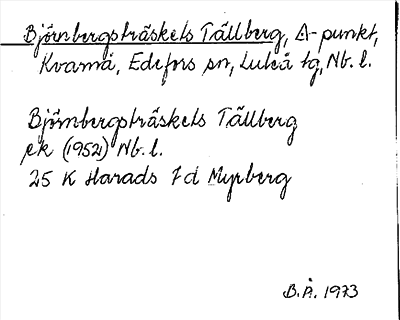 Björnbergsträskets Tällberg, A-punkt,
Kvarnå, Edefors sn, Luleå tg, Nb. l.
Björnbergsträskets Tällberg
ek (1952) Nb. l.
25 K Harads 7d Myrberg
B.Å. 1973